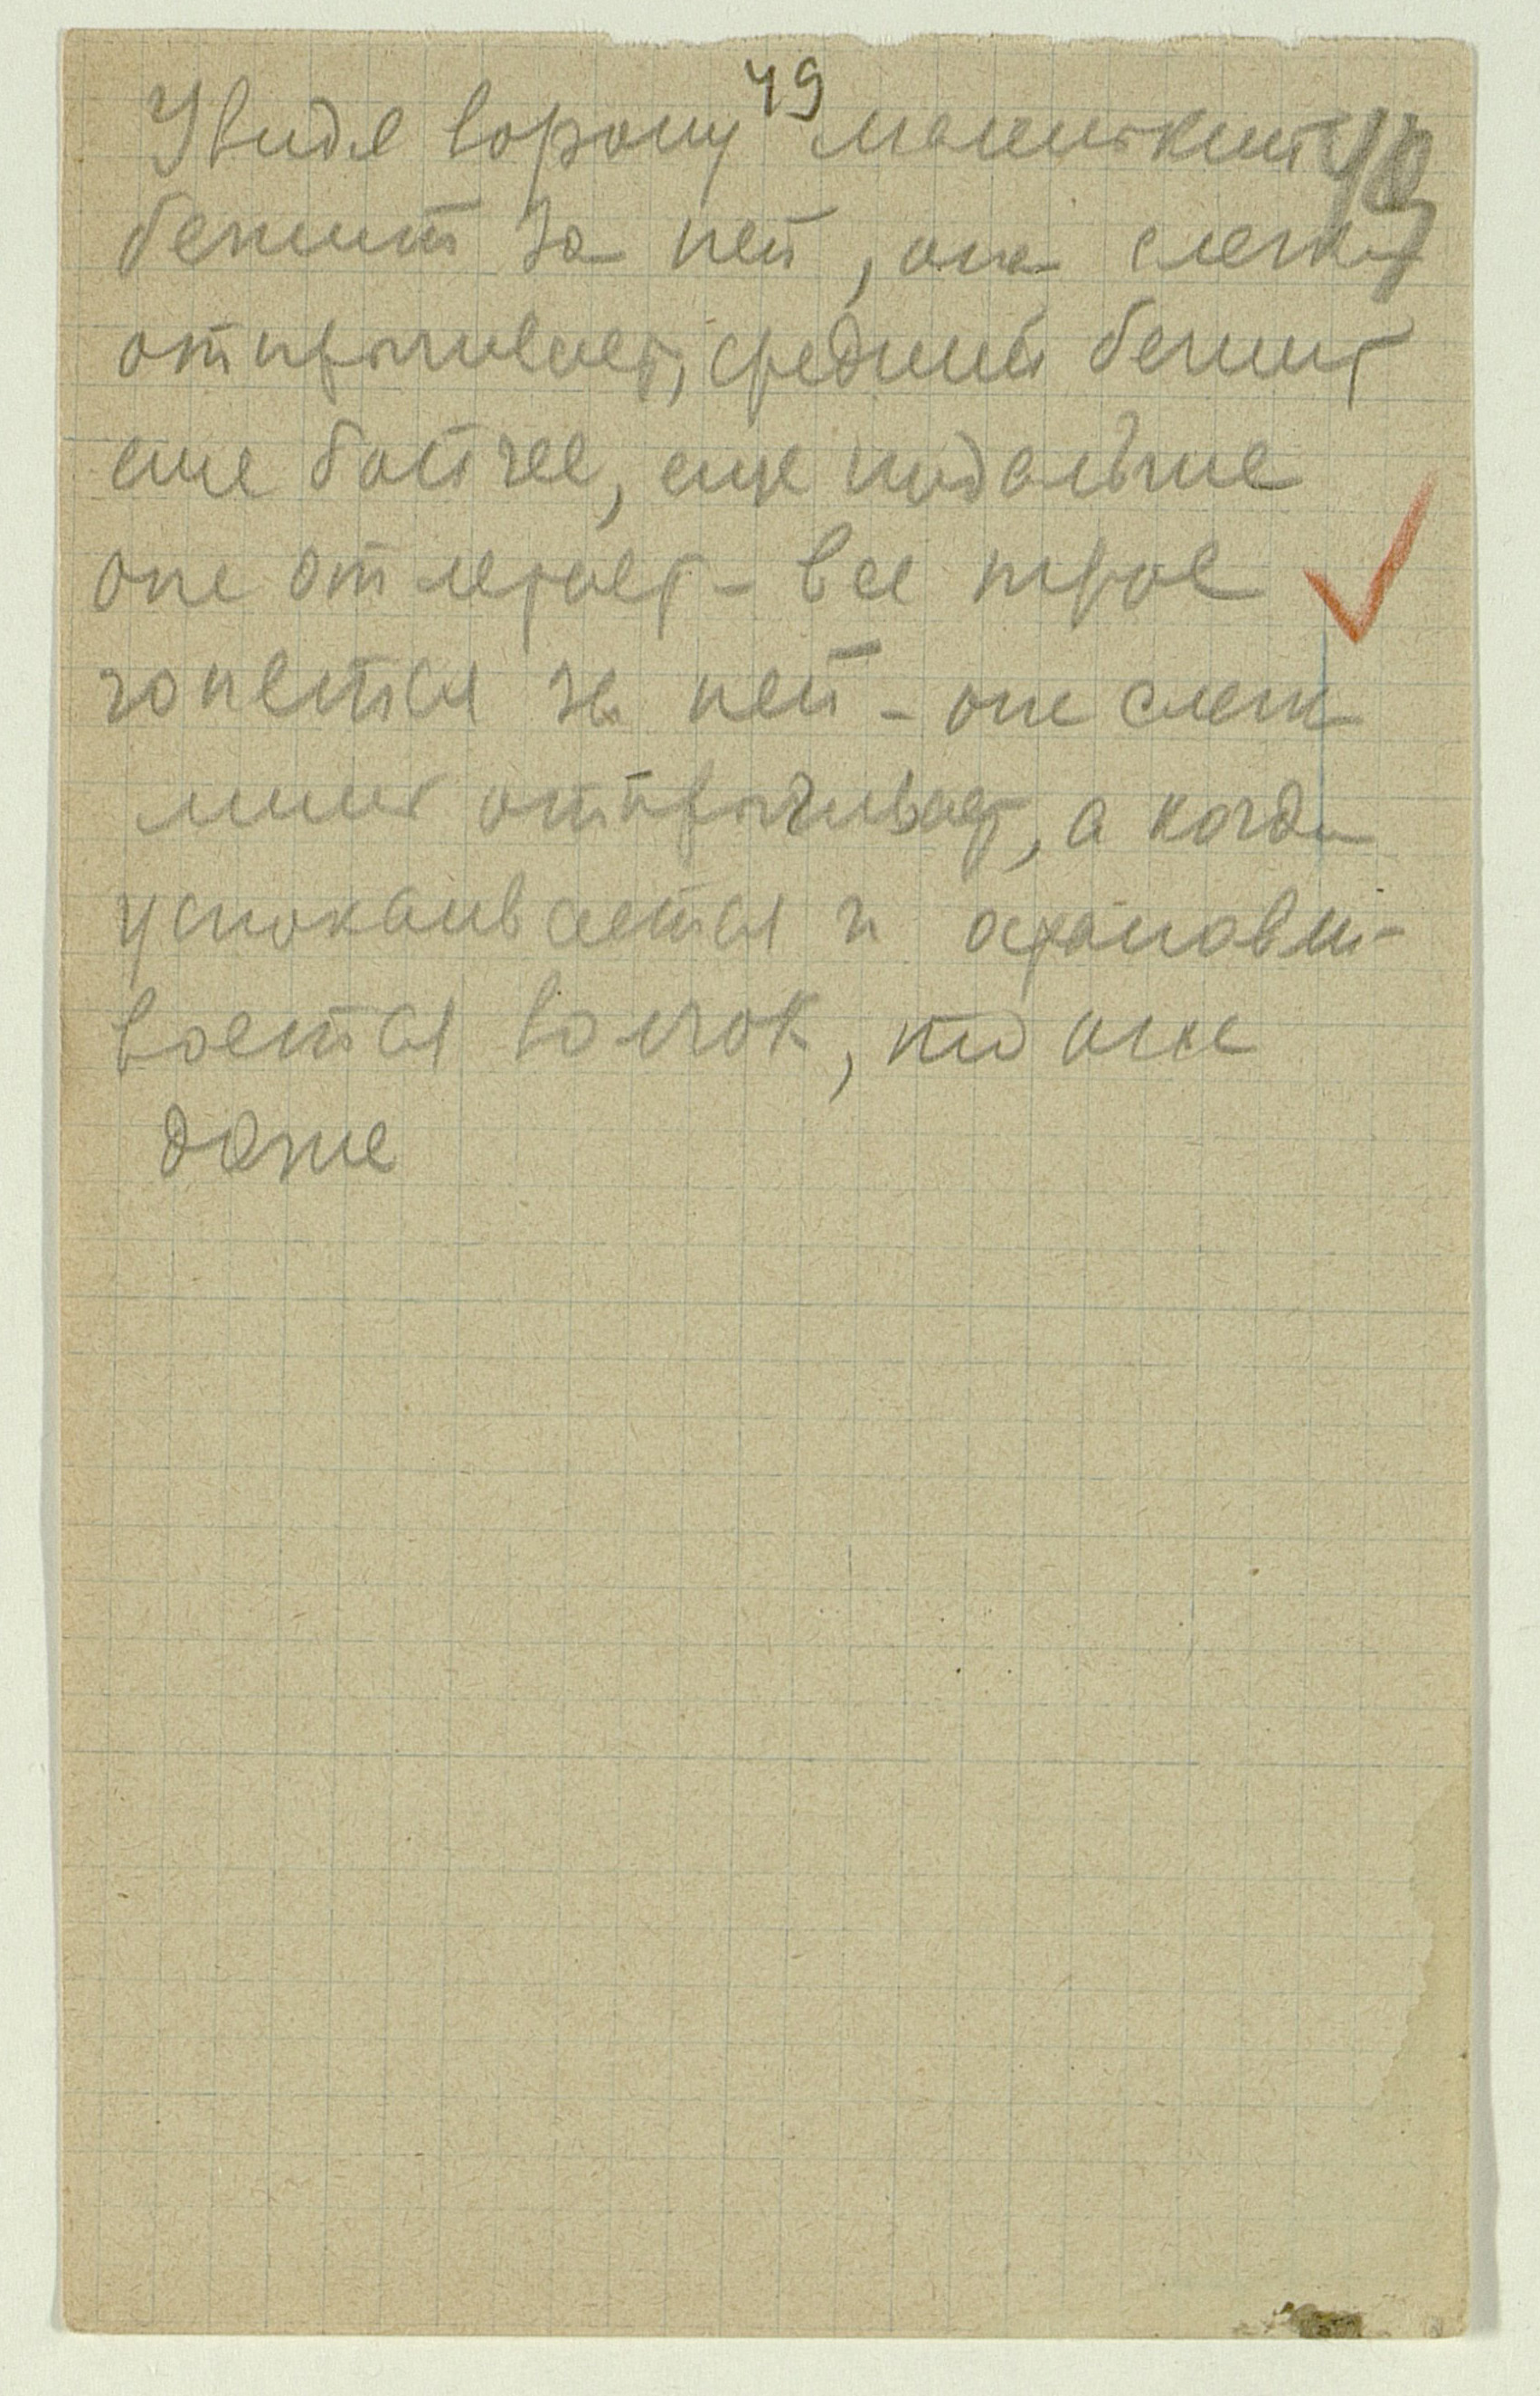 49
Увидя ворону маленький
бежит за ней, она слегка
отпрыгивает, средний бежит
еще бойчее, еще подальше
она отлетает – все трое
гонятся за ней – она слегка
лишь отпрыгивает, а когда
успокаивается и останавли-
вается волчок, то она
даже